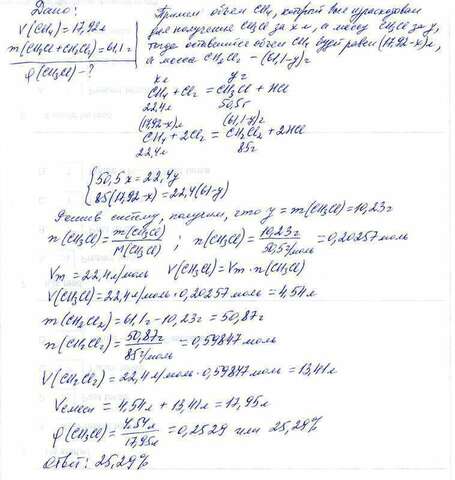 Дано:
V(CH4)=17,92л
m(CH3Cl+CH2Cl2)=61,1г
φ(CH3Cl)-?
Примем объем CH4, который был израсходован
на получение CH3Cl за x л, а массу CH3Cl за y,
тогда оставшийся объем CH4 будет равен (17,92-x)л,
а масса CH2Cl2 – (61,1-y)г
x л y г
CH4 + Cl2 = CH3Cl + HCl
22,4л 50,5г
(17,92-x)л (61,1-y)г
CH4 + 2Cl2 = CH2Cl2 + 2HCl
22,4л 85г
50,5x = 22,4y
85(17,92-x) = 22,4(61-y)
Решив систему, получим, что y = m(CH3Cl)=10,23г
n(CH3Cl)=m(CH3Cl)/M(CH3Cl) ; n(CH3Cl)=10,23г/50,5г/моль=0,20257моль
Vm = 22,4л/моль V(CH3Cl)=Vm·n(CH3Cl)
V(CH3Cl)=22,4л/моль·0,20257моль=4,54л
m(CH2Cl2)=61,1г-10,23г=50,87г
n(CH2Cl2)=50,87г/85г/моль=0,59847моль
V(CH2Cl2)=22,4л/моль·0,59847моль=13,41л
Vсмеси = 4,54л + 13,41л = 17,95л
φ(CH3Cl)=4,54л/17,95л=0,2529 или 25,29%
Ответ: 25,29%